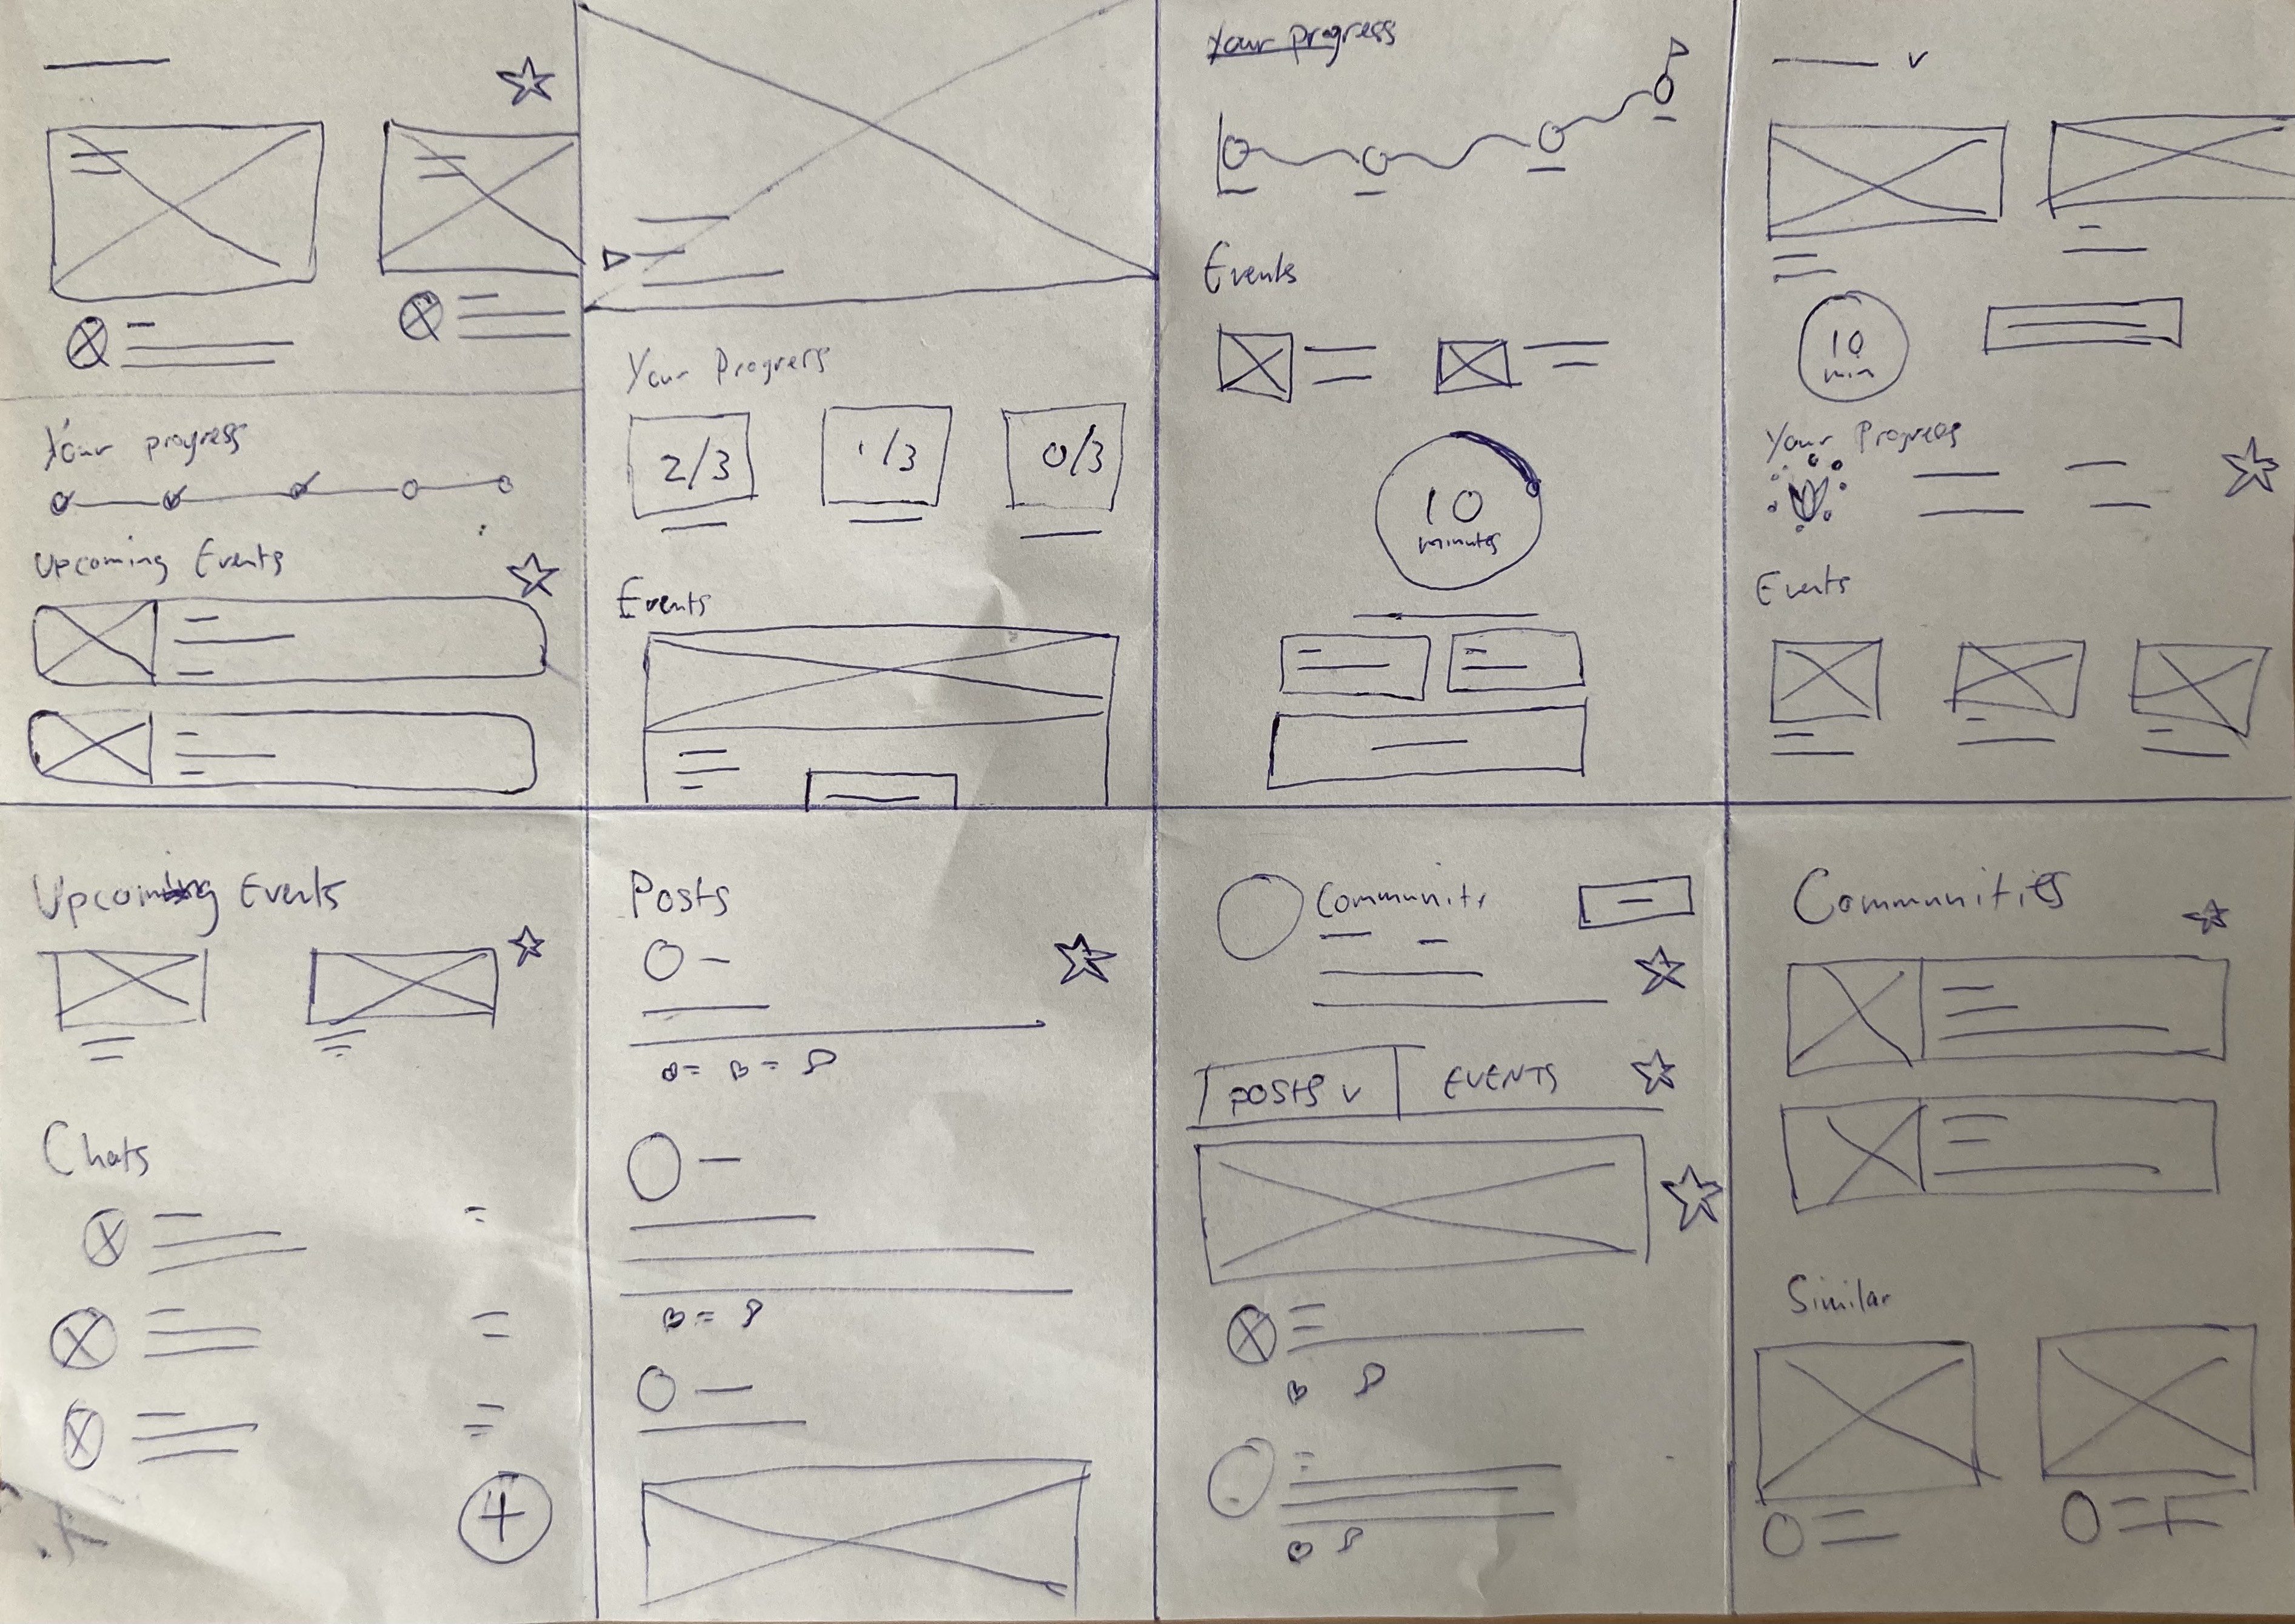 Your progress
Upcoming Events
Your Progress
2/3
1/3
0/3
Events
Your progress
Events
10
minutes
v
10
min
Your Progress
Events
Upcoming Events
Chats
Posts
Community
Posts v
EVENTS
Communities
Similar